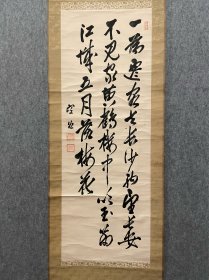 一為遷客去長沙西望長安
不見家黃鶴樓中吹玉笛
江城五月落梅花